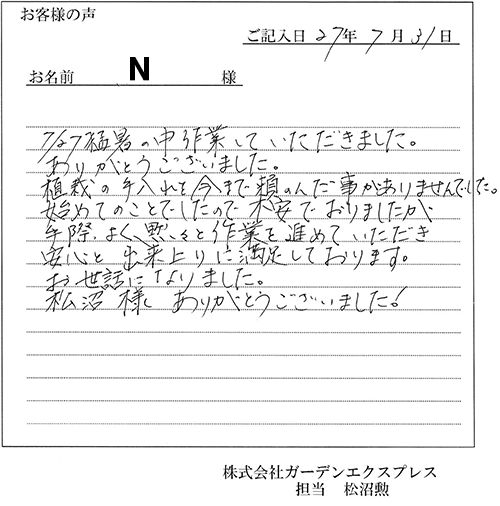 お客様の声
ご記入日 27年 7月 31日
お名前 N 様
7/27猛暑の中作業していただきました。
ありがとうございました。
植栽の手入れを今まで頼んだ事がありませんでした。
始めてのことでしたので不安でおりましたが
手際よく、黙々と作業を進めていただき
安心と出来上りに満足しております。
お世話になりました。
松沼様 ありがとうございました!
株式会社ガーデンエクスプレス
担当 松沼勲